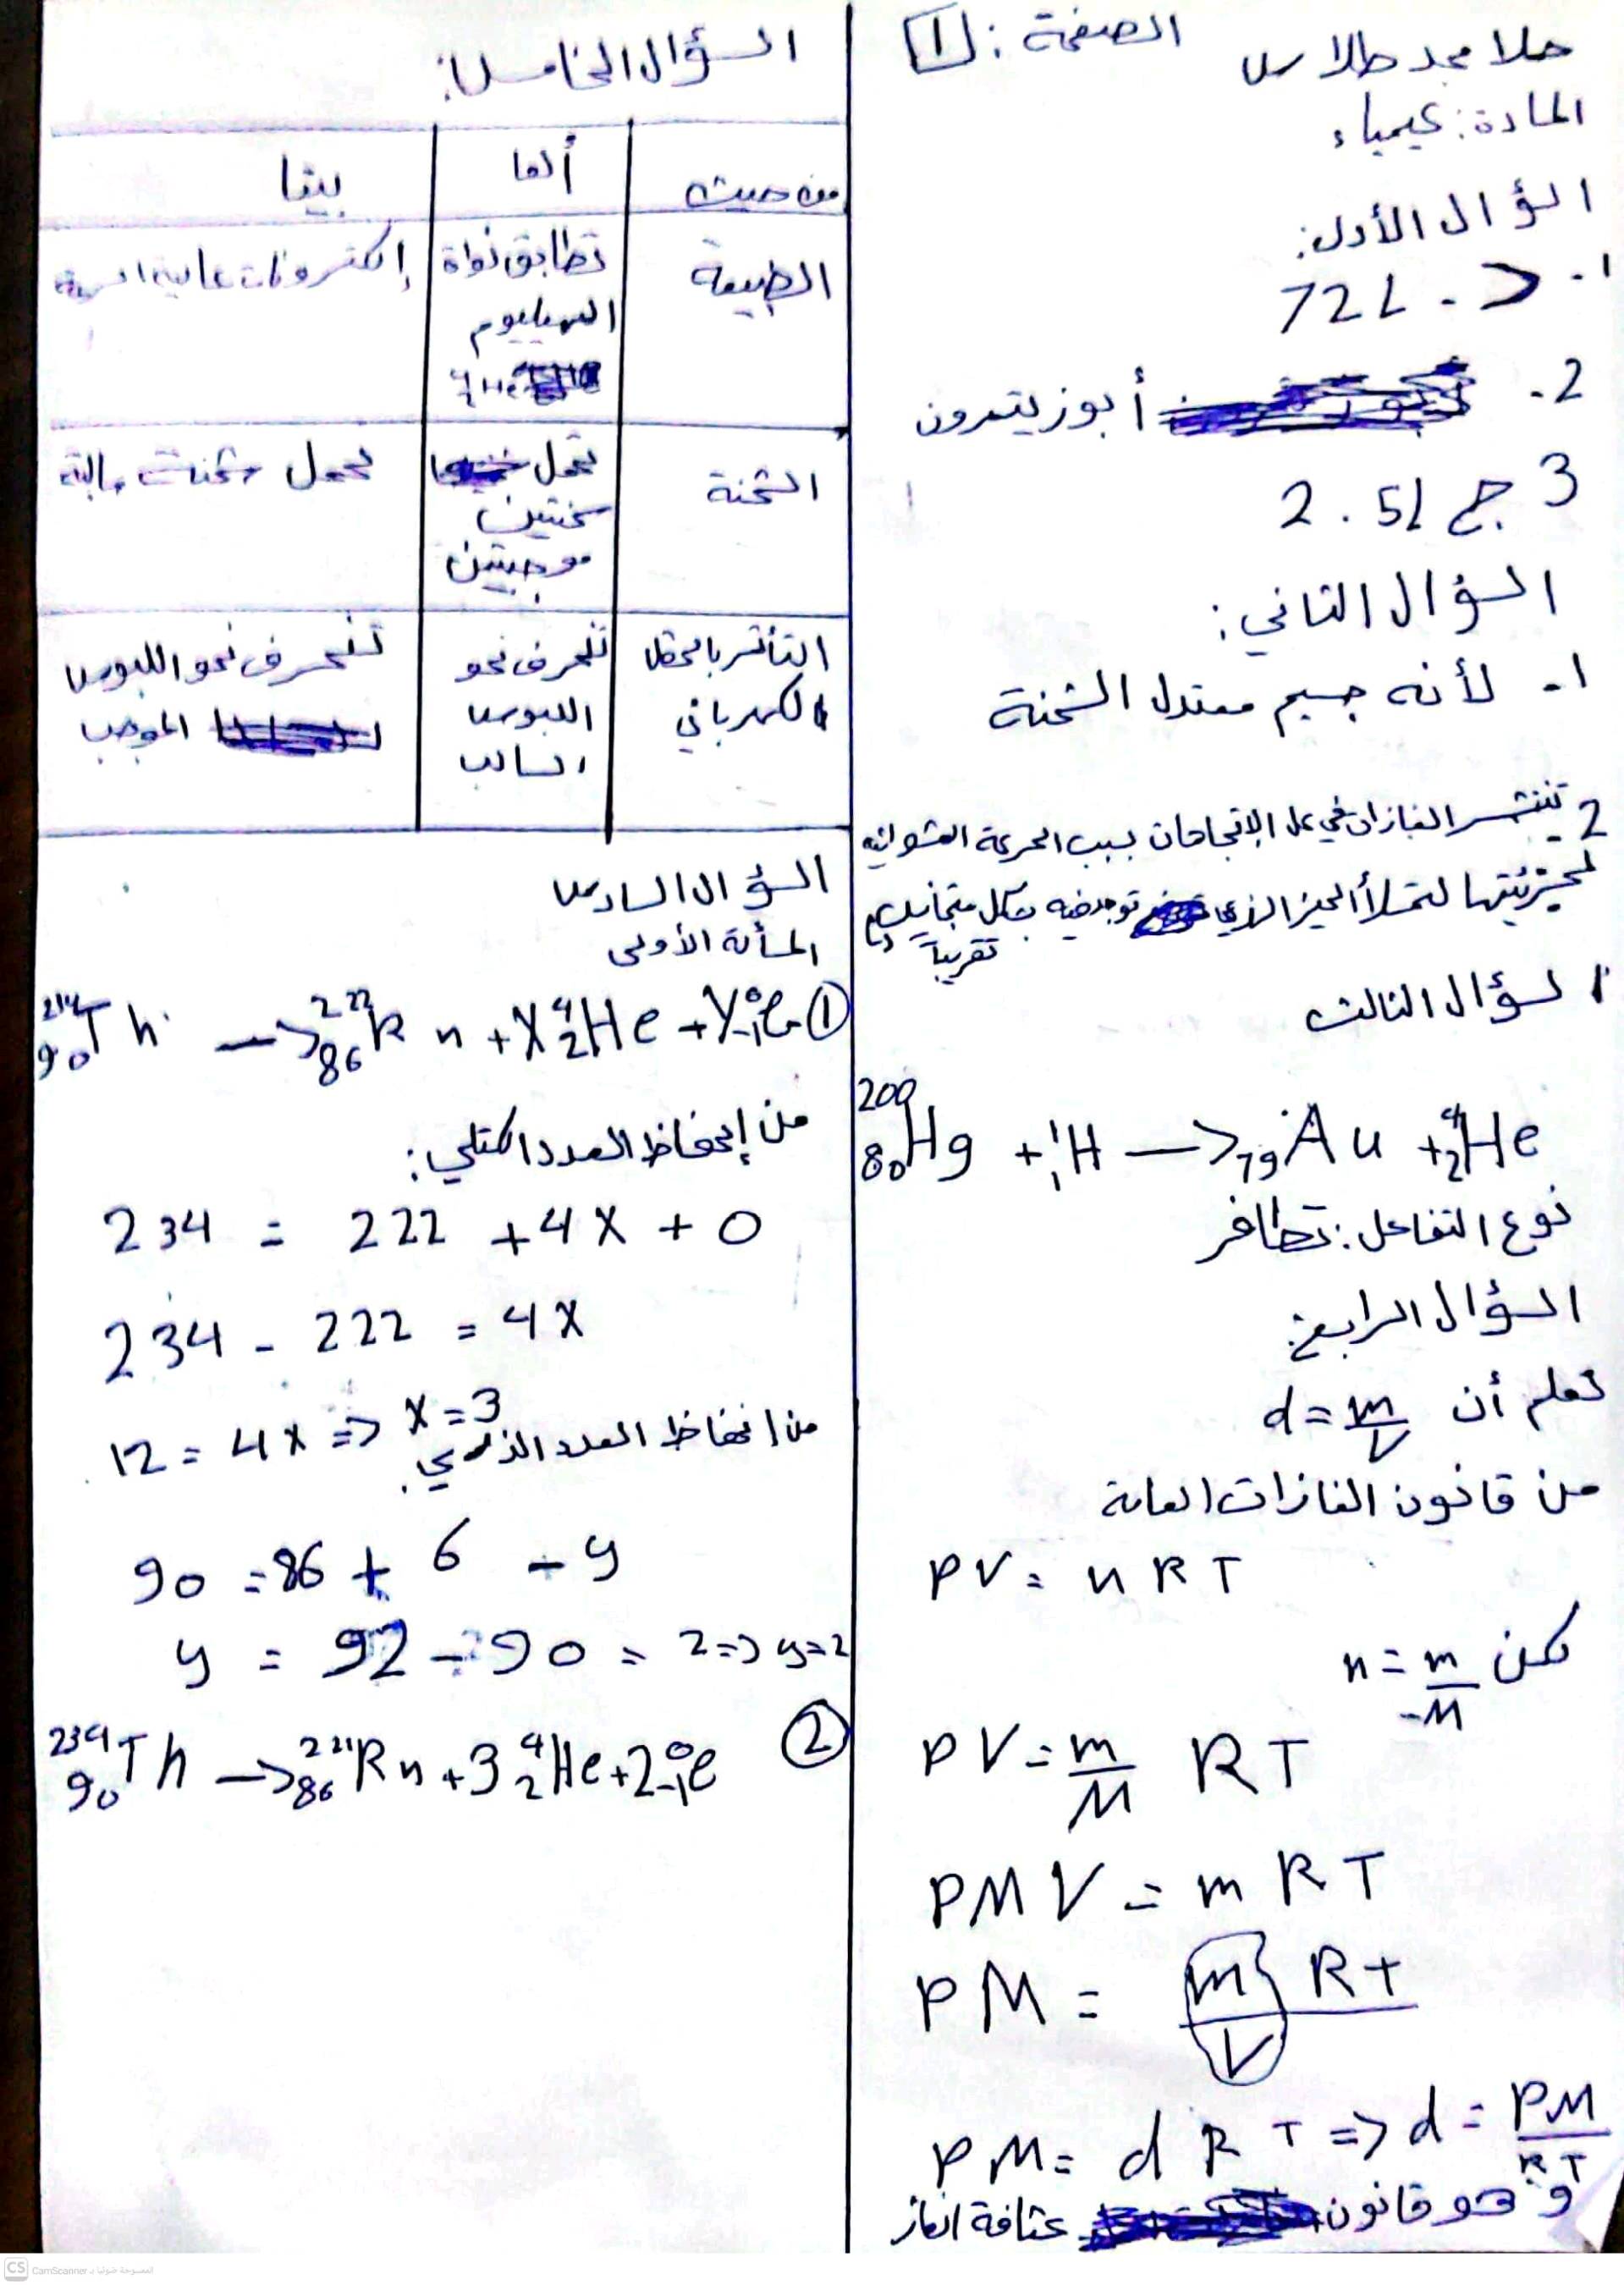 حلا محمد طلاس
الصفحة: 1
المادة: كيمياء
السؤال الأول:
1- د - 72L
2- أ بوزيترون
3 ج 2.5L
السؤال الثاني:
1- لأنه جسيم معتدل الشحنة
2 تنتشر الغازات في كل الإتجاهات بسبب الحركة العشوائية
لجزيئتها لتملأ الحيز الذي توجد فيه بشكل متجانس
تقريباً
السؤال الثالث
²⁰⁰₈₀Hg + ¹₁H → ₇₉Au + ⁴₂He
نوع التفاعل: تطافر
السؤال الرابع:
نعلم أن d = m/V
من قانون الغازات العامة
PV = n R T
لكن n = m/M
PV = m/M RT
PMV = m R T
PM = m R T / V
PM = d R T => d = PM/RT
و هو قانون كثافة الغاز
السؤال الخامس:
من حيث | ألفا | بيتا
الطبيعة | تطابق نواة الهيليوم ⁴He | إلكترونات عالية السرعة
الشحنة | تحمل شحنتين موجبتين | تحمل شحنة سالبة
التأثر بالحقل الكهربائي | تنحرف نحو اللبوس السالب | تنحرف نحو اللبوس الموجب
السؤال السادس
المسألة الأولى
① ²³⁴₉₀Th → ²²²₈₆Rn + X ⁴₂He + Y ⁰₋₁e
من إنحفاظ العدد الكتلي:
234 = 222 + 4X + 0
234 - 222 = 4X
12 = 4X => X = 3
من انحفاظ العدد الذري:
90 = 86 + 6 - y
y = 92 - 90 = 2 => y = 2
② ²³⁴₉₀Th → ²²²₈₆Rn + 3 ⁴₂He + 2 ⁰₋₁e
CS CamScanner الممسوحة ضوئيا بـ